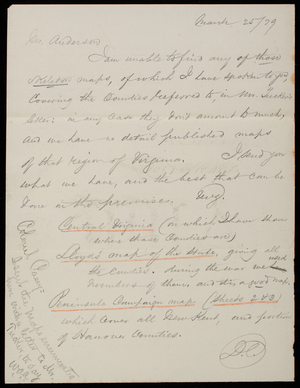 March 25/79
Mr. Anderson
I am unable to find any of those
skeleton maps, of which I have spoken to you
Covering the Counties referred to in Mr.
letter: in any case they don't amount to much,
and we have no detail published maps
of that region of Virginia. I send you
what we have, and the best that can be
done in the premises. Very.
Central Virginia (on which I have shown
where those Counties are)
Lloyd's map of the State, giving all
the Counties. During the war we used
numbers of them, and it is a good map.
Peninsula Campaign map (Sheets 2 & 3)
which comes all New Kent, and portions
of Hanover Counties.
Colonel Casey:
Maps
letter to Mr.